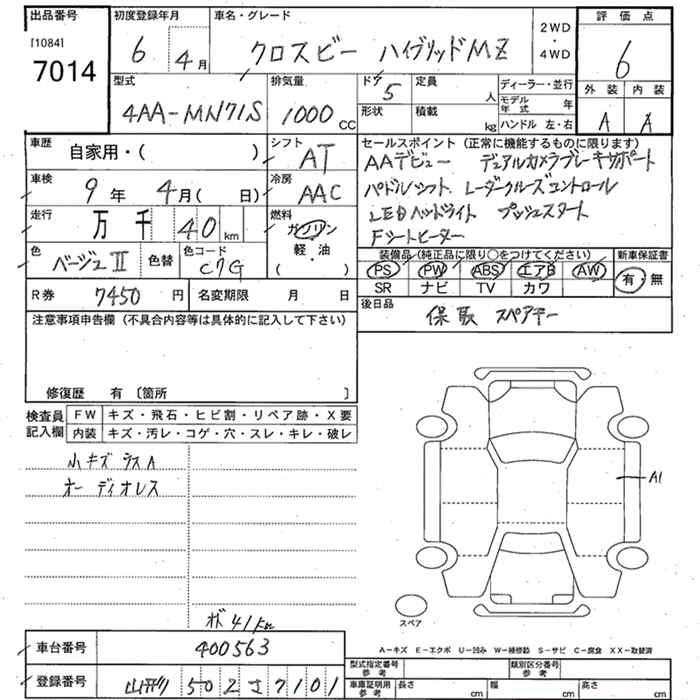 出品番号 初度登録年月 車名・グレード 評価点
[1084] 7014 6年4月 クロスビー ハイブリッドMZ 2WD・4WD 6
型式 排気量 ドア 定員 ディーラー・並行 外装 内装
4AA-MN71S 1000cc 5 人 モデル年式 年 A A
形状 積載 kg ハンドル 左・右
車歴 自家用・( ) シフト AT
セールスポイント (正常に機能するものに限ります)
AAデビュー デュアルカメラブレーキサポート
車検 9年4月( 日) 冷房 AAC
パドルシフト レーダークルーズコントロール
走行 万千40km 燃料 ガソリン・軽・油( )
LEDヘッドライト プッシュスタート
Fシートヒーター
色 ベージュII 色替 色コード C7G
装備品 (純正品に限り○をつけてください) 新車保証書
PS PW ABS エアB AW 有・無
SR ナビ TV カワ
R券 7450円 名変期限 月 日
後日品 保取 スペアキー
注意事項申告欄 (不具合内容等は具体的に記入して下さい)
修復歴 有 〔箇所 〕
検査員記入欄 FW キズ・飛石・ヒビ割・リペア跡・X要
内装 キズ・汚レ・コゲ・穴・スレ・キレ・破レ
小キズ ラスA
オーディオレス
A1
スペア
41km
A-キズ E-エクボ U-凹み W-補修跡 S-サビ C-腐食 XX-取替済
車台番号 400563
型式指定番号 参考 類別区分番号 参考
登録番号 502 7101
車庫証明用 参考 長さ cm 幅 cm 高さ cm